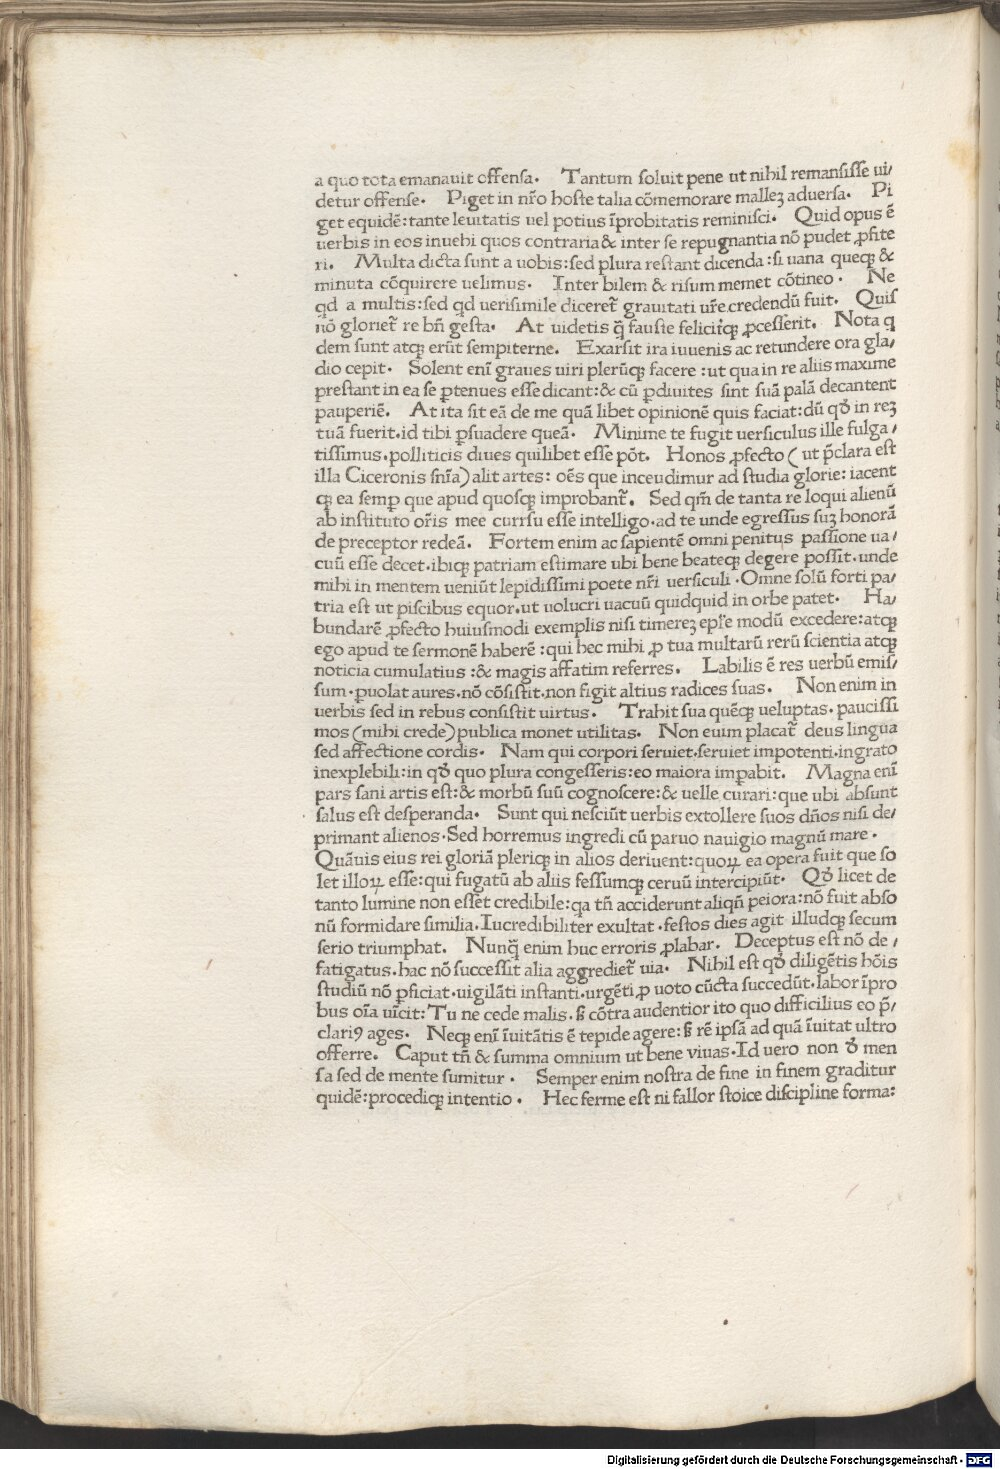 a quo tota emanauit offensa. Tantum soluit pene ut nihil remansisse ui/
detur offense. Piget in nr̄o hoste talia cōmemorare malleꝫ aduersa. Pi
get equidē: tante leuitatis uel potius īprobitatis reminisci. Quid opus ē
uerbis in eos inuehi quos contraria & inter se repugnantia nō pudet ꝓfite
ri. Multa dicta sunt a uobis: sed plura restant dicenda: si uana queqꝫ &
minuta cōquirere uelimus. Inter bilem & risum memet cōtineo. Ne
qd a multis: sed qd uerisimile diceret̄ grauitati ur̄e credendū fuit. Quis
nō gloriet̄ re bn̄ gesta. At uidetis q̄ fauste feliciťqꝫ ꝓcesserit. Nota q
dem sunt atqꝫ erūt sempiterne. Exarsit ira iuuenis ac retundere ora gla/
dio cepit. Solent enī graues uiri plerūqꝫ facere: ut qua in re aliis maxime
prestant in ea se ꝑtenues esse dicant: & cū ꝑdiuites sint suā palā decantent
pauperiē. At ita sit eā de me quā libet opinionē quis faciat: dū qđ in reꝫ
tuā fuerit. id tibi ꝑsuadere queā. Minime te fugit uersiculus ille fulga/
tissimus. polliticis diues quilibet esse pōt. Honos ꝓfecto (ut p̄clara est
illa Ciceronis sn̄ia) alit artes: oēs que inceudimur ad studia glorie: iacent
qꝫ ea semꝑ que apud quosqꝫ improbant̄. Sed qm̄ de tanta re loqui alienū
ab instituto or̄is mee currsu esse intelligo. ad te unde egressus suꝫ honorā
de preceptor redeā. Fortem enim ac sapientē omni penitus passione ua/
cuū esse decet. ibiqꝫ patriam estimare ubi bene beateqꝫ degere possit. unde
mihi in mentem ueniūt lepidissimi poete nr̄i uersiculi. Omne solū forti pa/
tria est ut piscibus equor. ut uolucri uacuū quidquid in orbe patet. Ha/
bundarē ꝓfecto huiusmodi exemplis nisi timereꝫ epľe modū excedere: atqꝫ
ego apud te sermonē haberē: qui hec mihi ꝓ tua multarū rerū scientia atqꝫ
noticia cumulatius: & magis affatim referres. Labilis ē res uerbū emis/
sum. ꝑuolat aures. nō cōsistit. non figit altius radices suas. Non enim in
uerbis sed in rebus consistit uirtus. Trahit sua quēqꝫ ueluptas. paucissi
mos (mihi crede) publica monet utilitas. Non euim placat̄ deus lingua
sed affectione cordis. Nam qui corpori seruiet. seruiet impotenti. ingrato
inexplebili: in qđ quo plura congesseris: eo maiora imꝑabit. Magna enī
pars sani artis est: & morbū suū cognoscere: & uelle curari: que ubi absunt
salus est desperanda. Sunt qui nesciūt uerbis extollere suos dn̄os nisi de/
primant alienos. Sed horremus ingredi cū paruo nauigio magnū mare.
Quāuis eius rei gloriā pleriqꝫ in alios deriuent: quoꝝ ea opera fuit que so
let illoꝝ esse: qui fugatū ab aliis fessumqꝫ ceruū intercipiūt. Qđ licet de
tanto lumine non esset credibile: qa tn̄ acciderunt aliqn̄ peiora: nō fuit abso
nū formidare similia. Iucredibiliter exultat. festos dies agit illudqꝫ secum
serio triumphat. Nunq̄ enim huc erroris ꝓlabar. Deceptus est nō de/
fatigatus. hac nō successit alia aggrediet̄ uia. Nihil est qđ diligētis hōis
studiū nō ꝑficiat. uigilāti instanti. urgēti ꝓ uoto cūcta succedūt. labor īpro
bus oīa uīcit: Tu ne cede malis. ß cōtra audentior ito quo difficilius eo p̄/
clariꝰ ages. Neqꝫ enī īuitātis ē tepide agere: ß rē ipsā ad quā īuitat ultro
offerre. Caput tn̄ & summa omnium ut bene viuas. Id uero non đ men
sa sed de mente sumitur. Semper enim nostra de fine in finem graditur
quidē: procediqꝫ intentio. Hec ferme est ni fallor stoice discipline forma:
Digitalisierung gefördert durch die Deutsche Forschungsgemeinschaft - DFG